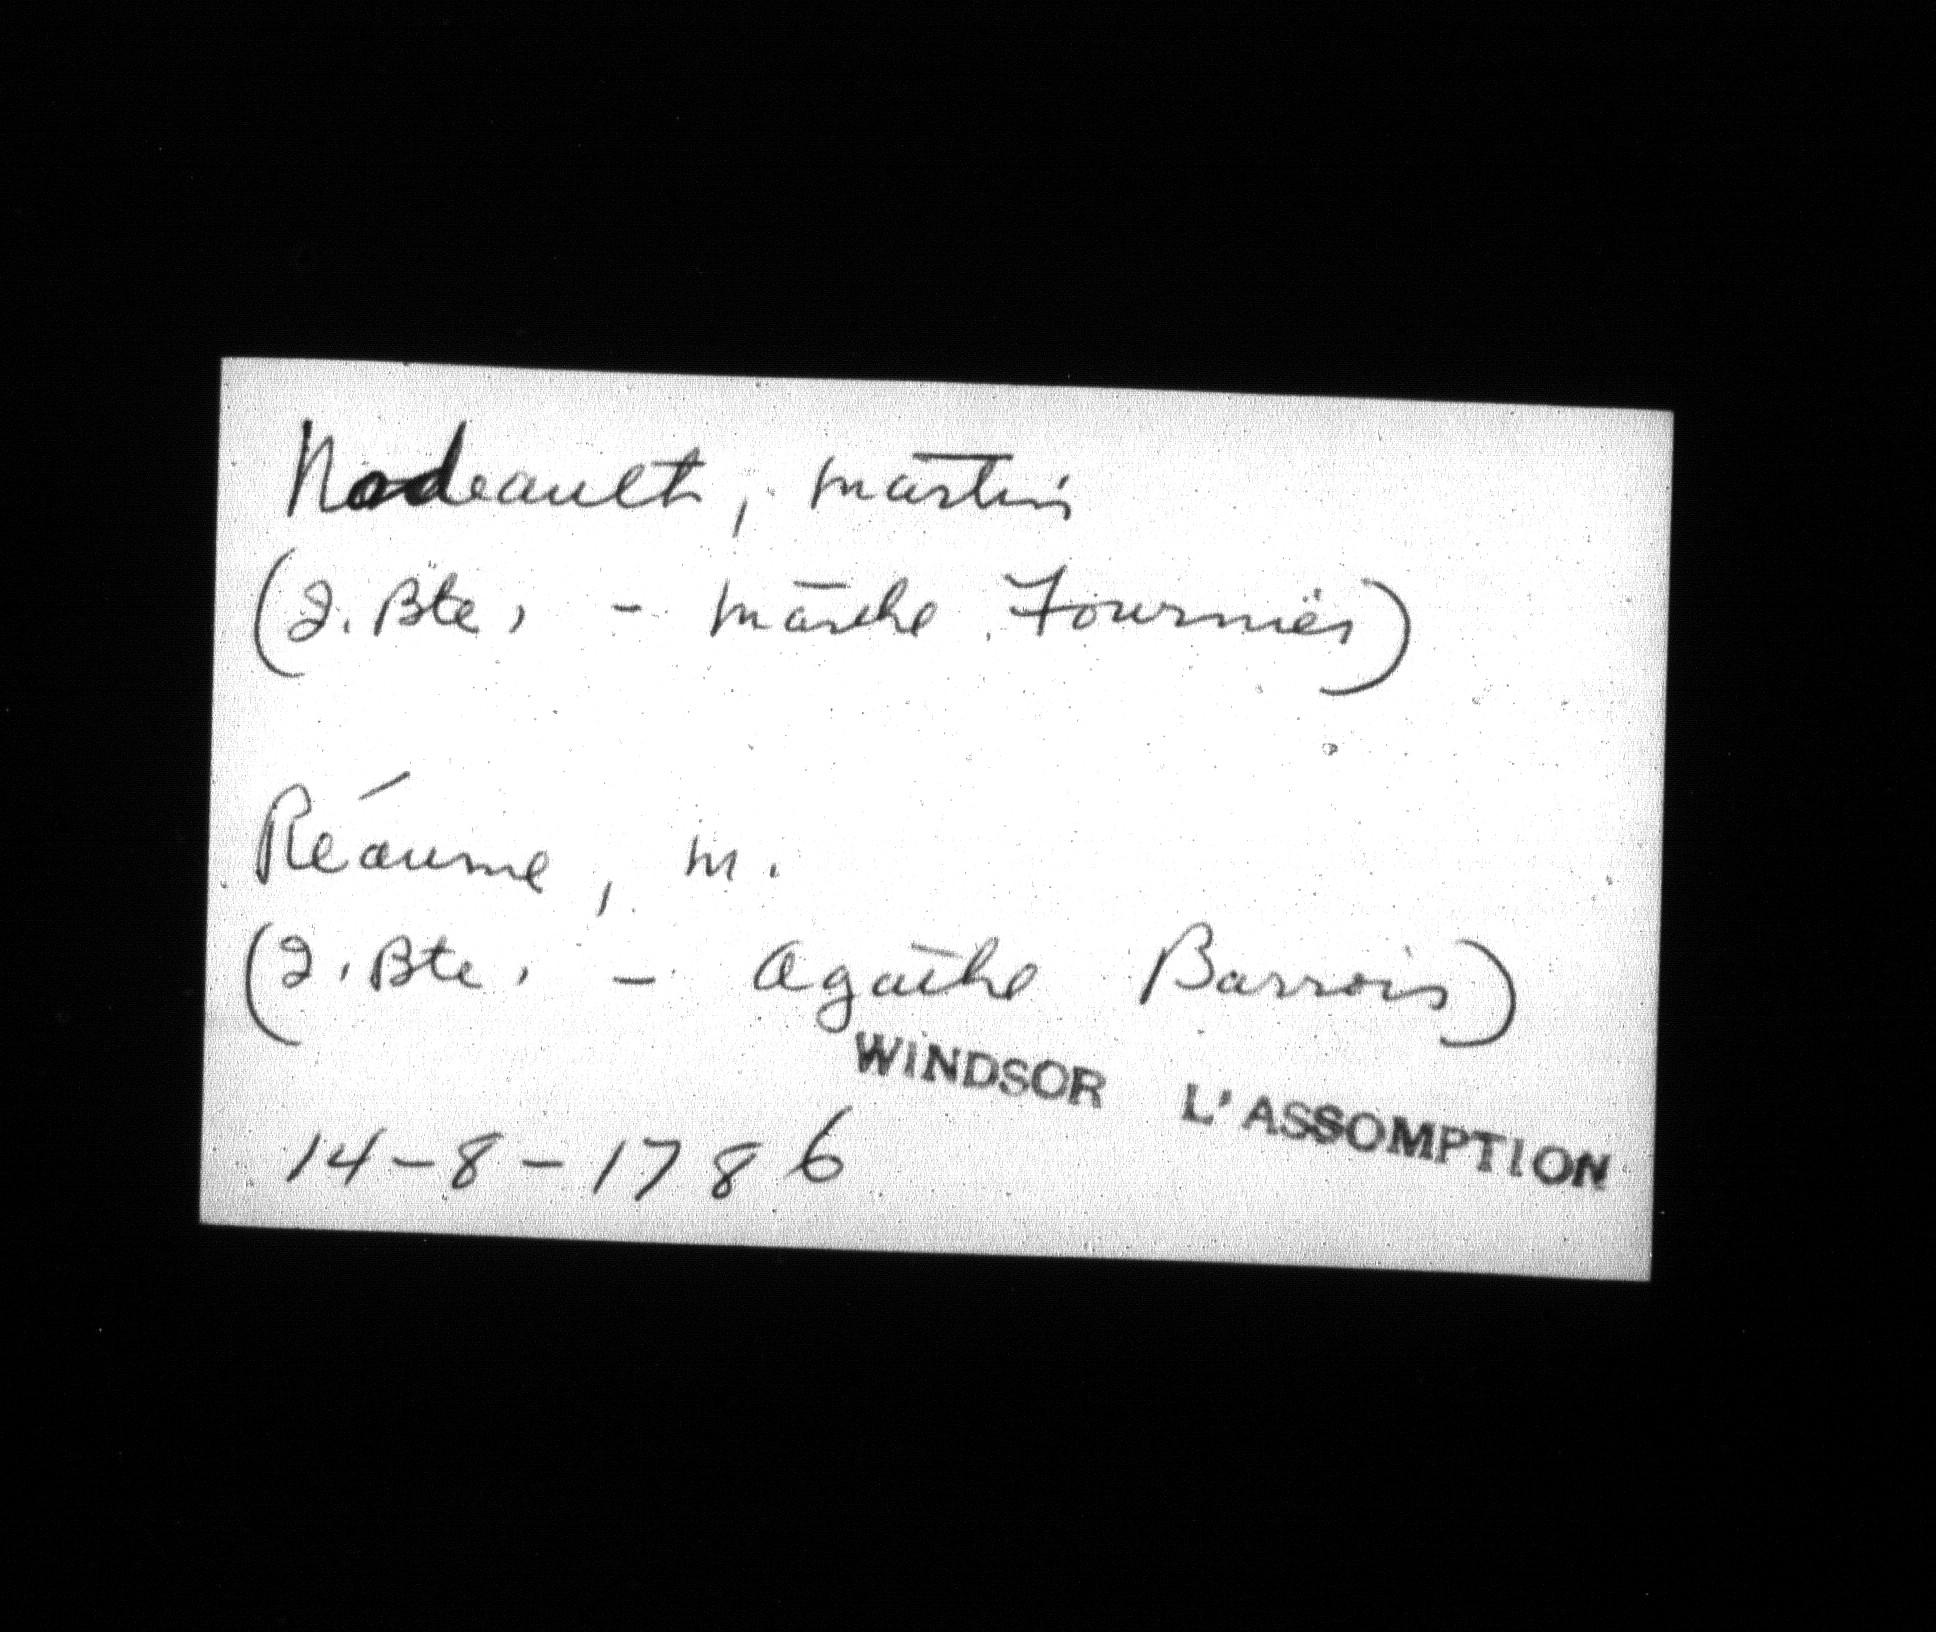 Nadeault, Martin
(J. Bte, - Marthe Fournier)
Réaume, M.
(J. Bte, - Agathe Barrois)
WINDSOR L'ASSOMPTION
14-8-1786